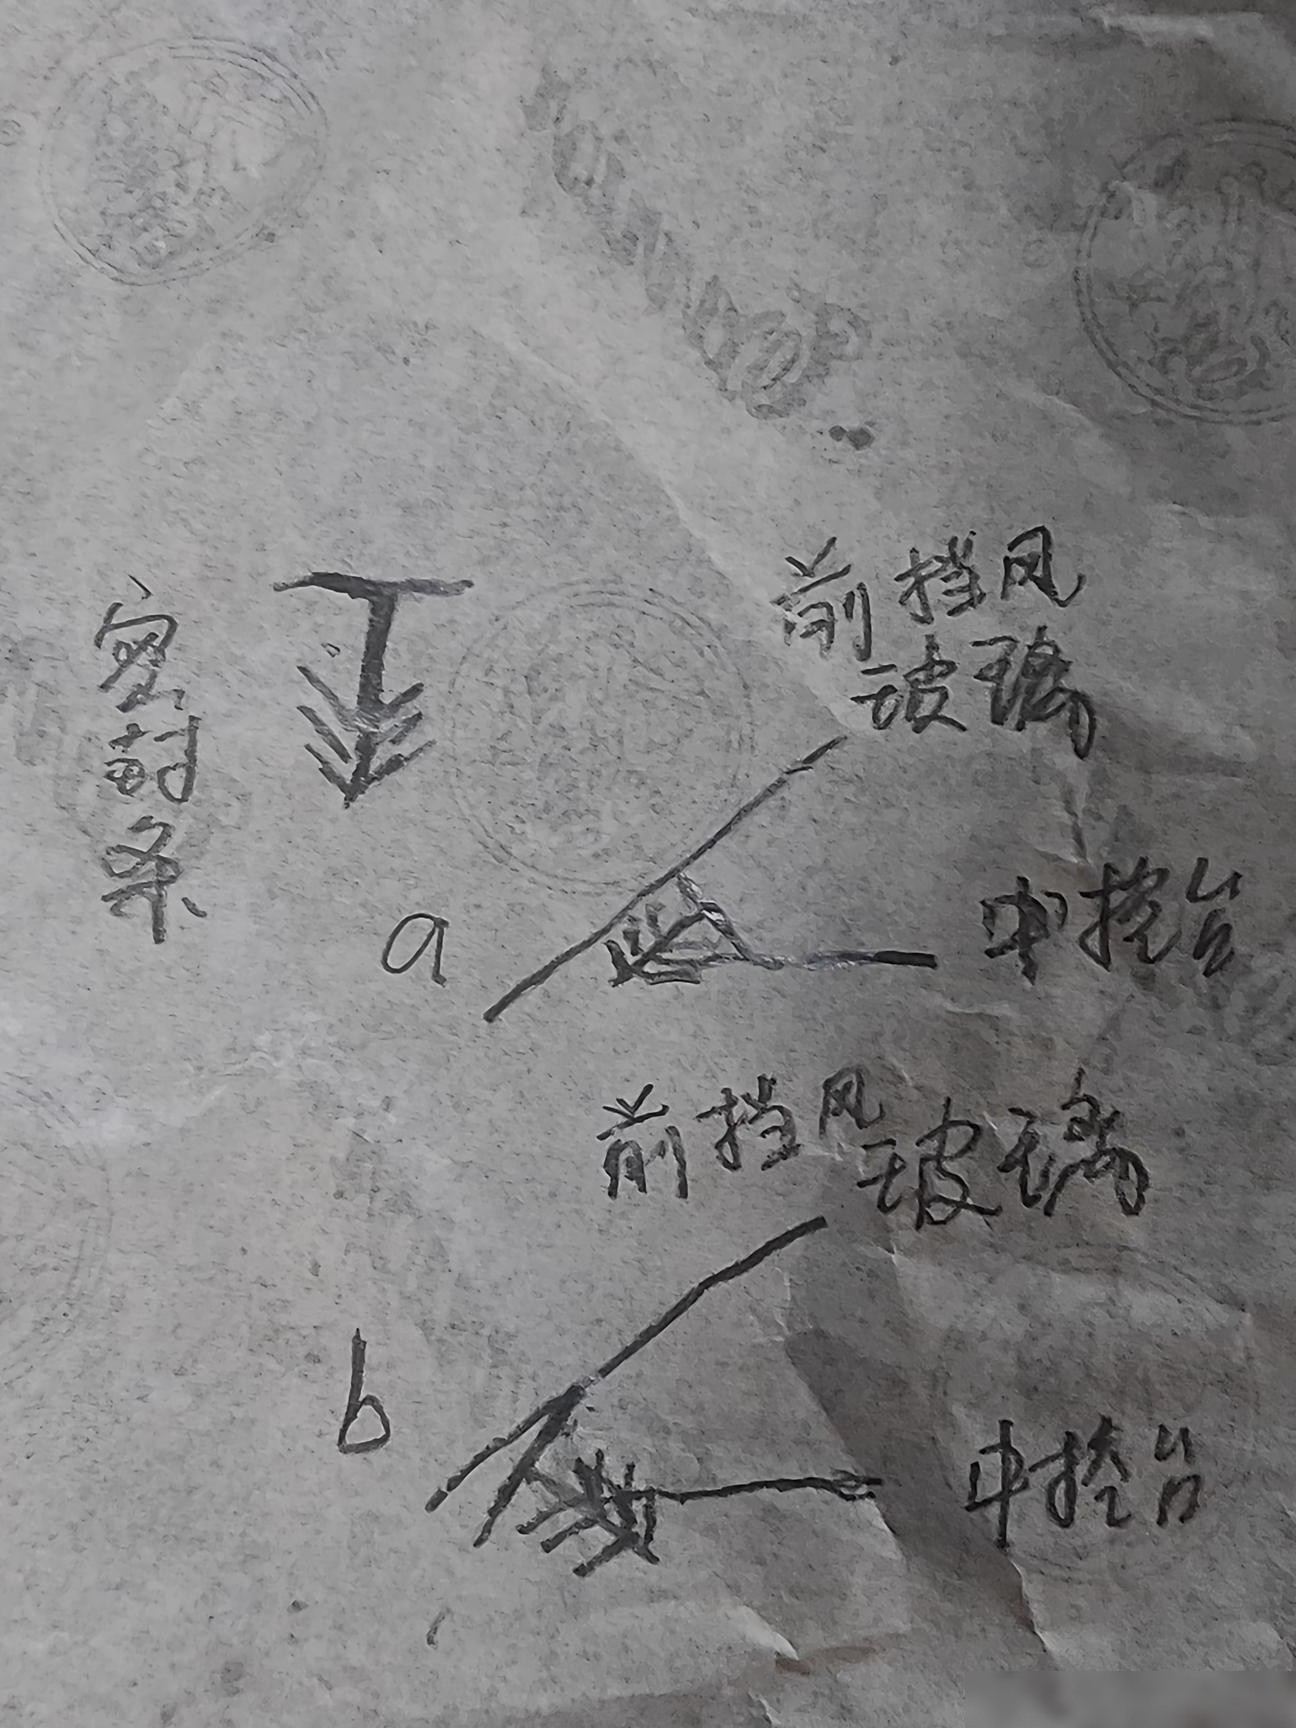 密封条
前挡风
玻璃
a
中控台
前挡风
玻璃
b
中控台